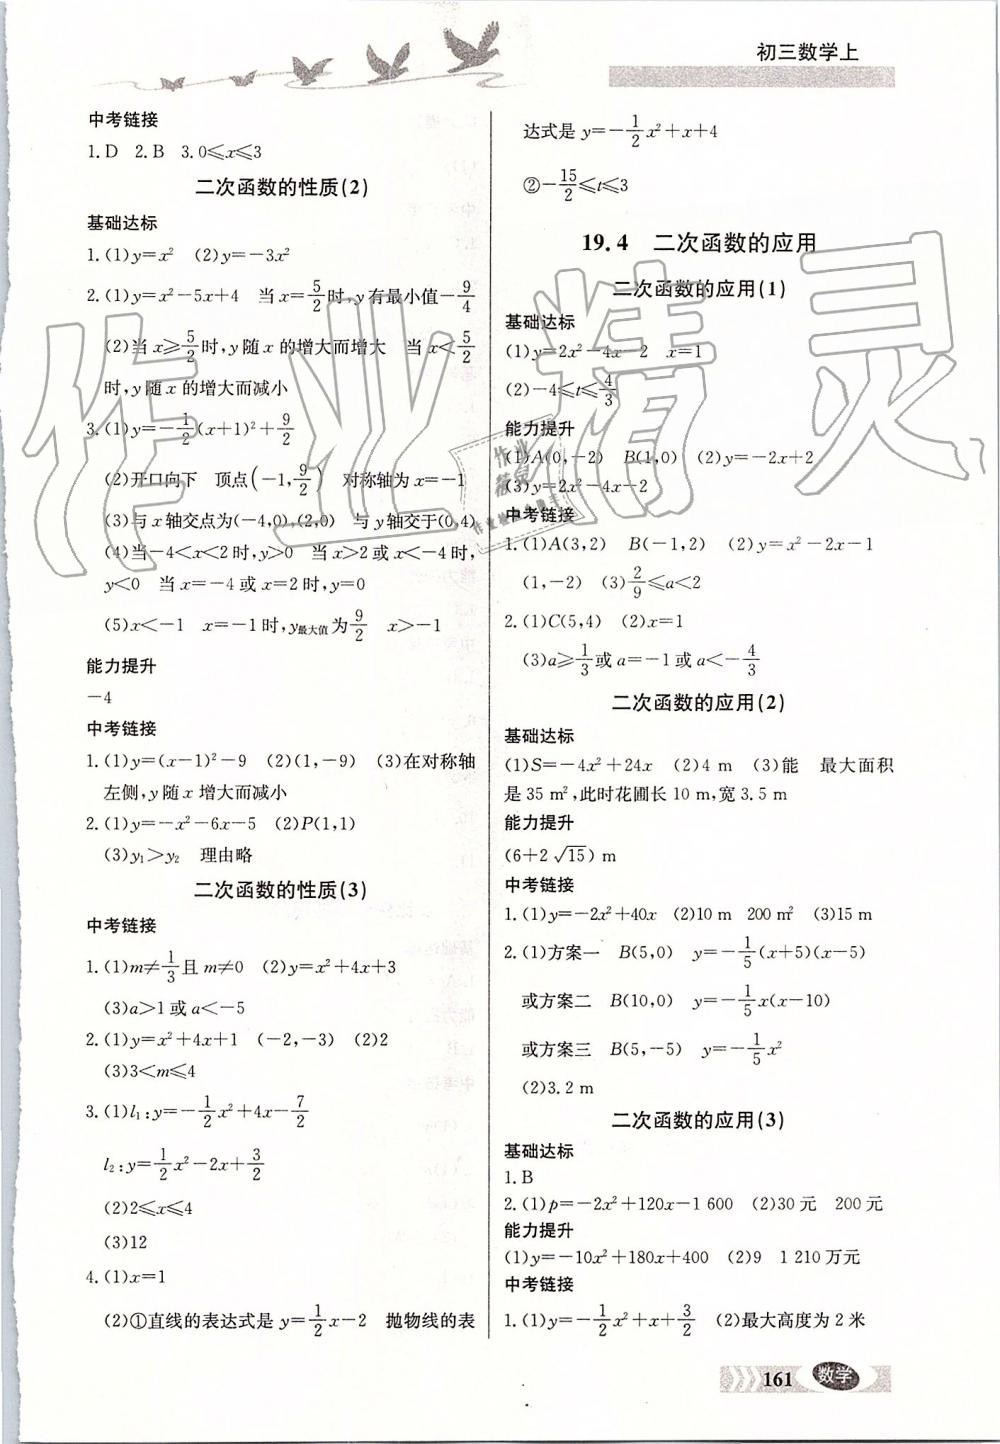 初三数学上
中考链接
1.D 2.B 3.0⩽x⩽3
二次函数的性质(2)
基础达标
1.(1)y=x² (2)y=-3x²
2.(1)y=x²-5x+4 当x=5/2时,y有最小值-9/4
(2)当x⩾5/2时,y随x的增大而增大 当x<5/2
时,y随x的增大而减小
3.(1)y=-1/2(x+1)²+9/2
(2)开口向下 顶点(-1,9/2) 对称轴为x=-1
(3)与x轴交点为(-4,0),(2,0) 与y轴交于(0,4)
(4)当-4<x<2时,y>0 当x>2或x<-4时,
y<0 当x=-4或x=2时,y=0
(5)x<-1 x=-1时,y最大值为9/2 x>-1
能力提升
-4
中考链接
1.(1)y=(x-1)²-9 (2)(1,-9) (3)在对称轴
左侧,y随x增大而减小
2.(1)y=-x²-6x-5 (2)P(1,1)
(3)y₁>y₂ 理由略
二次函数的性质(3)
中考链接
1.(1)m≠1/3且m≠0 (2)y=x²+4x+3
(3)a>1或a<-5
2.(1)y=x²+4x+1 (-2,-3) (2)2
(3)3<m⩽4
3.(1)l₁:y=-1/2x²+4x-7/2
l₂:y=1/2x²-2x+3/2
(2)2⩽x⩽4
(3)12
4.(1)x=1
(2)①直线的表达式是y=1/2x-2 抛物线的表
达式是y=-1/2x²+x+4
②-15/2⩽t⩽3
19.4 二次函数的应用
二次函数的应用(1)
基础达标
(1)y=2x²-4x-2 x=1
(2)-4⩽t⩽4/3
能力提升
(1)A(0,-2) B(1,0) (2)y=-2x+2
(3)y=2x²-4x-2
中考链接
1.(1)A(3,2) B(-1,2) (2)y=x²-2x-1
(1,-2) (3)2/9⩽a<2
2.(1)C(5,4) (2)x=1
(3)a⩾1/3或a=-1或a<-4/3
二次函数的应用(2)
基础达标
(1)S=-4x²+24x (2)4 m (3)能 最大面积
是35 m²,此时花圃长10 m,宽3.5 m
能力提升
(6+2√15) m
中考链接
1.(1)y=-2x²+40x (2)10 m 200 m² (3)15 m
2.(1)方案一 B(5,0) y=-1/5(x+5)(x-5)
或方案二 B(10,0) y=-1/5x(x-10)
或方案三 B(5,-5) y=-1/5x²
(2)3.2 m
二次函数的应用(3)
基础达标
1.B
2.(1)p=-2x²+120x-1 600 (2)30元 200元
能力提升
(1)y=-10x²+180x+400 (2)9 1 210万元
中考链接
1.(1)y=-1/2x²+x+3/2 (2)最大高度为2米
161 数学
作业精灵